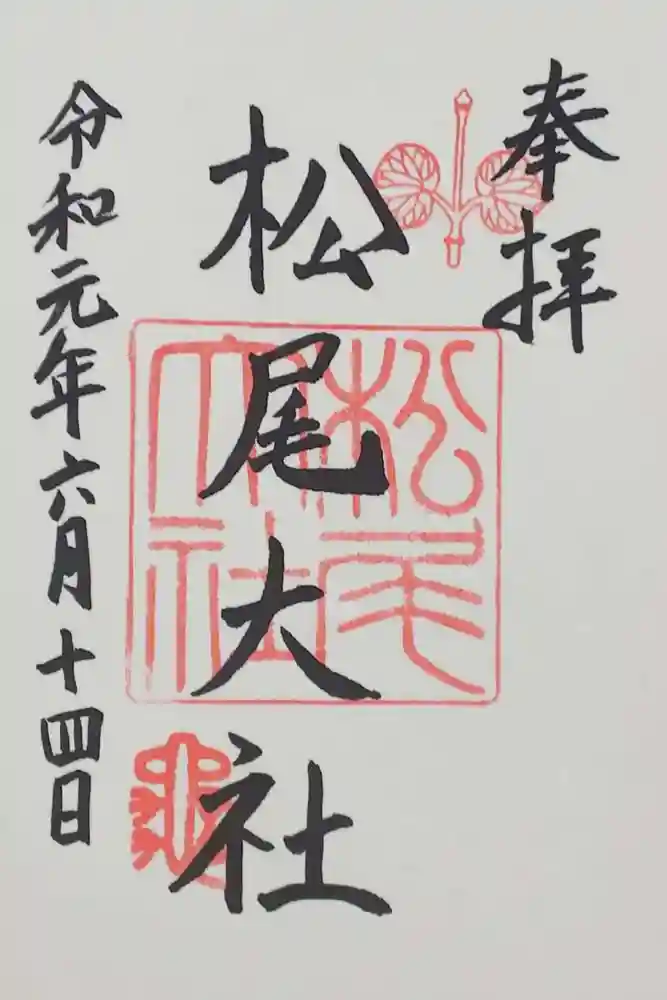 奉拝
松尾大社
松尾大社
令和元年六月十四日